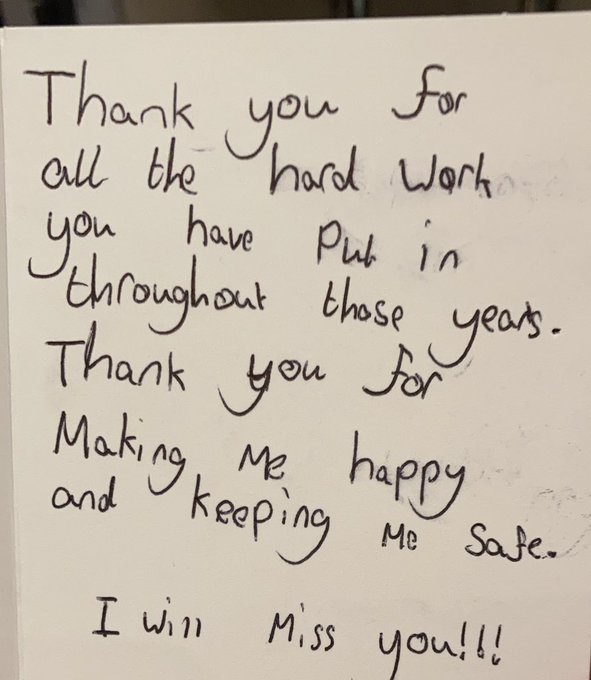 Thank you for
all the hard work
you have Put in
throughout those years.
Thank you for
Making Me happy
and keeping Me safe.
I will Miss you!!!